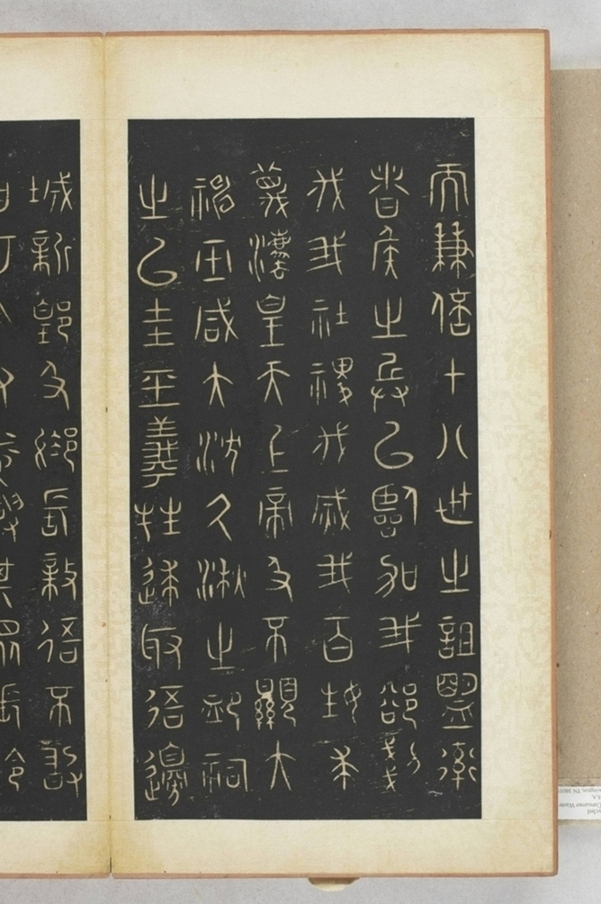 而兼倍十八世之詛盟衛
者侯之兵㠯臨加我欲剗
伐我社稷伐烕我百姓求
蔑灋皇天上帝及不顯大
神巫咸大沈久湫之卹祠
之㠯圭玉羲牲逑取吾邊
城新郢及䣙長敹吾不敢
曰可